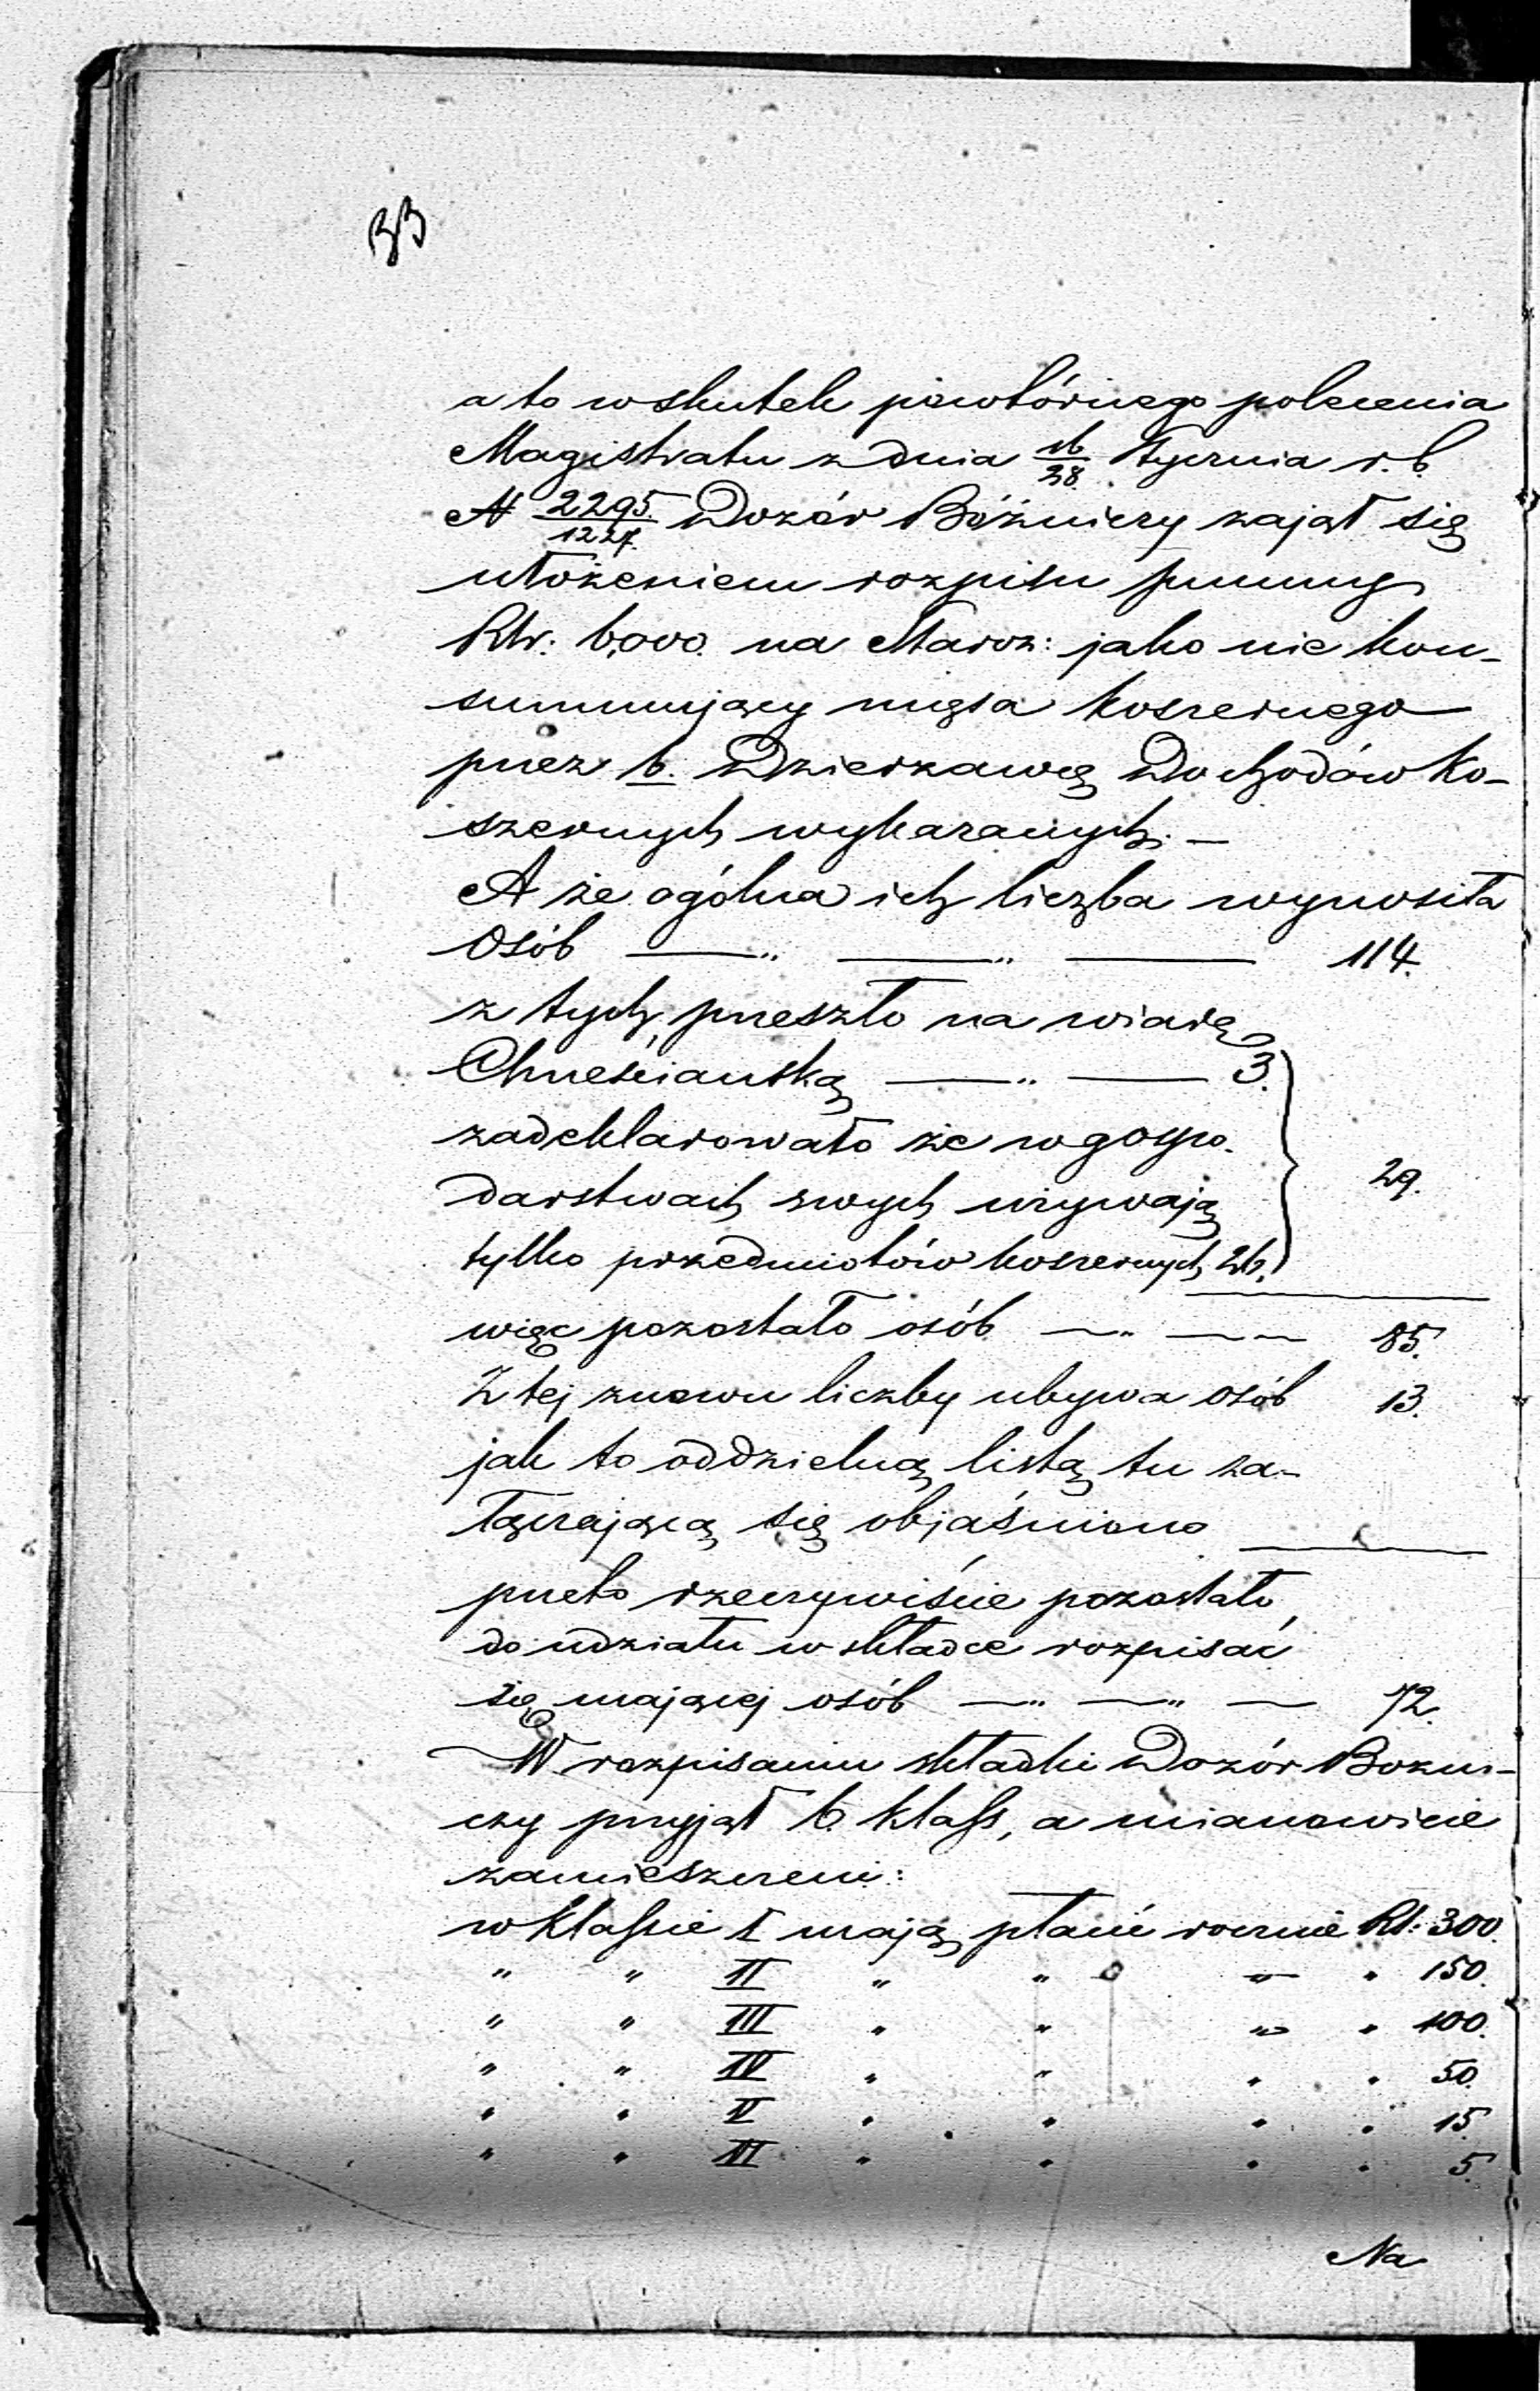 33
a to w skutek powtórnego polecenia
Magistratu z dnia 16/28 Stycznia r. b.
N 2295/1227. Dozór Bóżniczy zajął się
ułożeniem rozpisu summy
Rsr. 6,000. na Staroz: jako nie kon-
summujący mięsa koszernego
przez b. Dzierżawę Dochodów Ko-
szernych wykazanych. —
A że ogólna ich liczba wynosiła
Osób —„ —„ — 114.
z tych przeszło na wiarę
Chrześciańską —„ — 3.
zadeklarowało że w gospo-
darstwach swych używają 29.
tylko przedmiotów koszernych 26.
więc pozostało osób —„ — 85.
Z tej znowu liczby ubywa osób 13.
jak to oddzielną listą tu za-
łączającą się objaśniono
przeto rzeczywiście pozostało
do udziału w składce rozpisać
się mającej osób —„ —„ — 72.
W rozpisaniu składki Dozór Bożni-
czy przyjął 6. klass, a mianowicie
zamieszczeni:
w klassie I mają płacić rocznie Rs: 300.
„ „ II „ „ „ „ 150.
„ „ III „ „ „ „ 100.
„ „ IV „ „ „ „ 50.
„ „ V „ „ „ „ 15.
„ „ VI „ „ „ „ 5.
Na